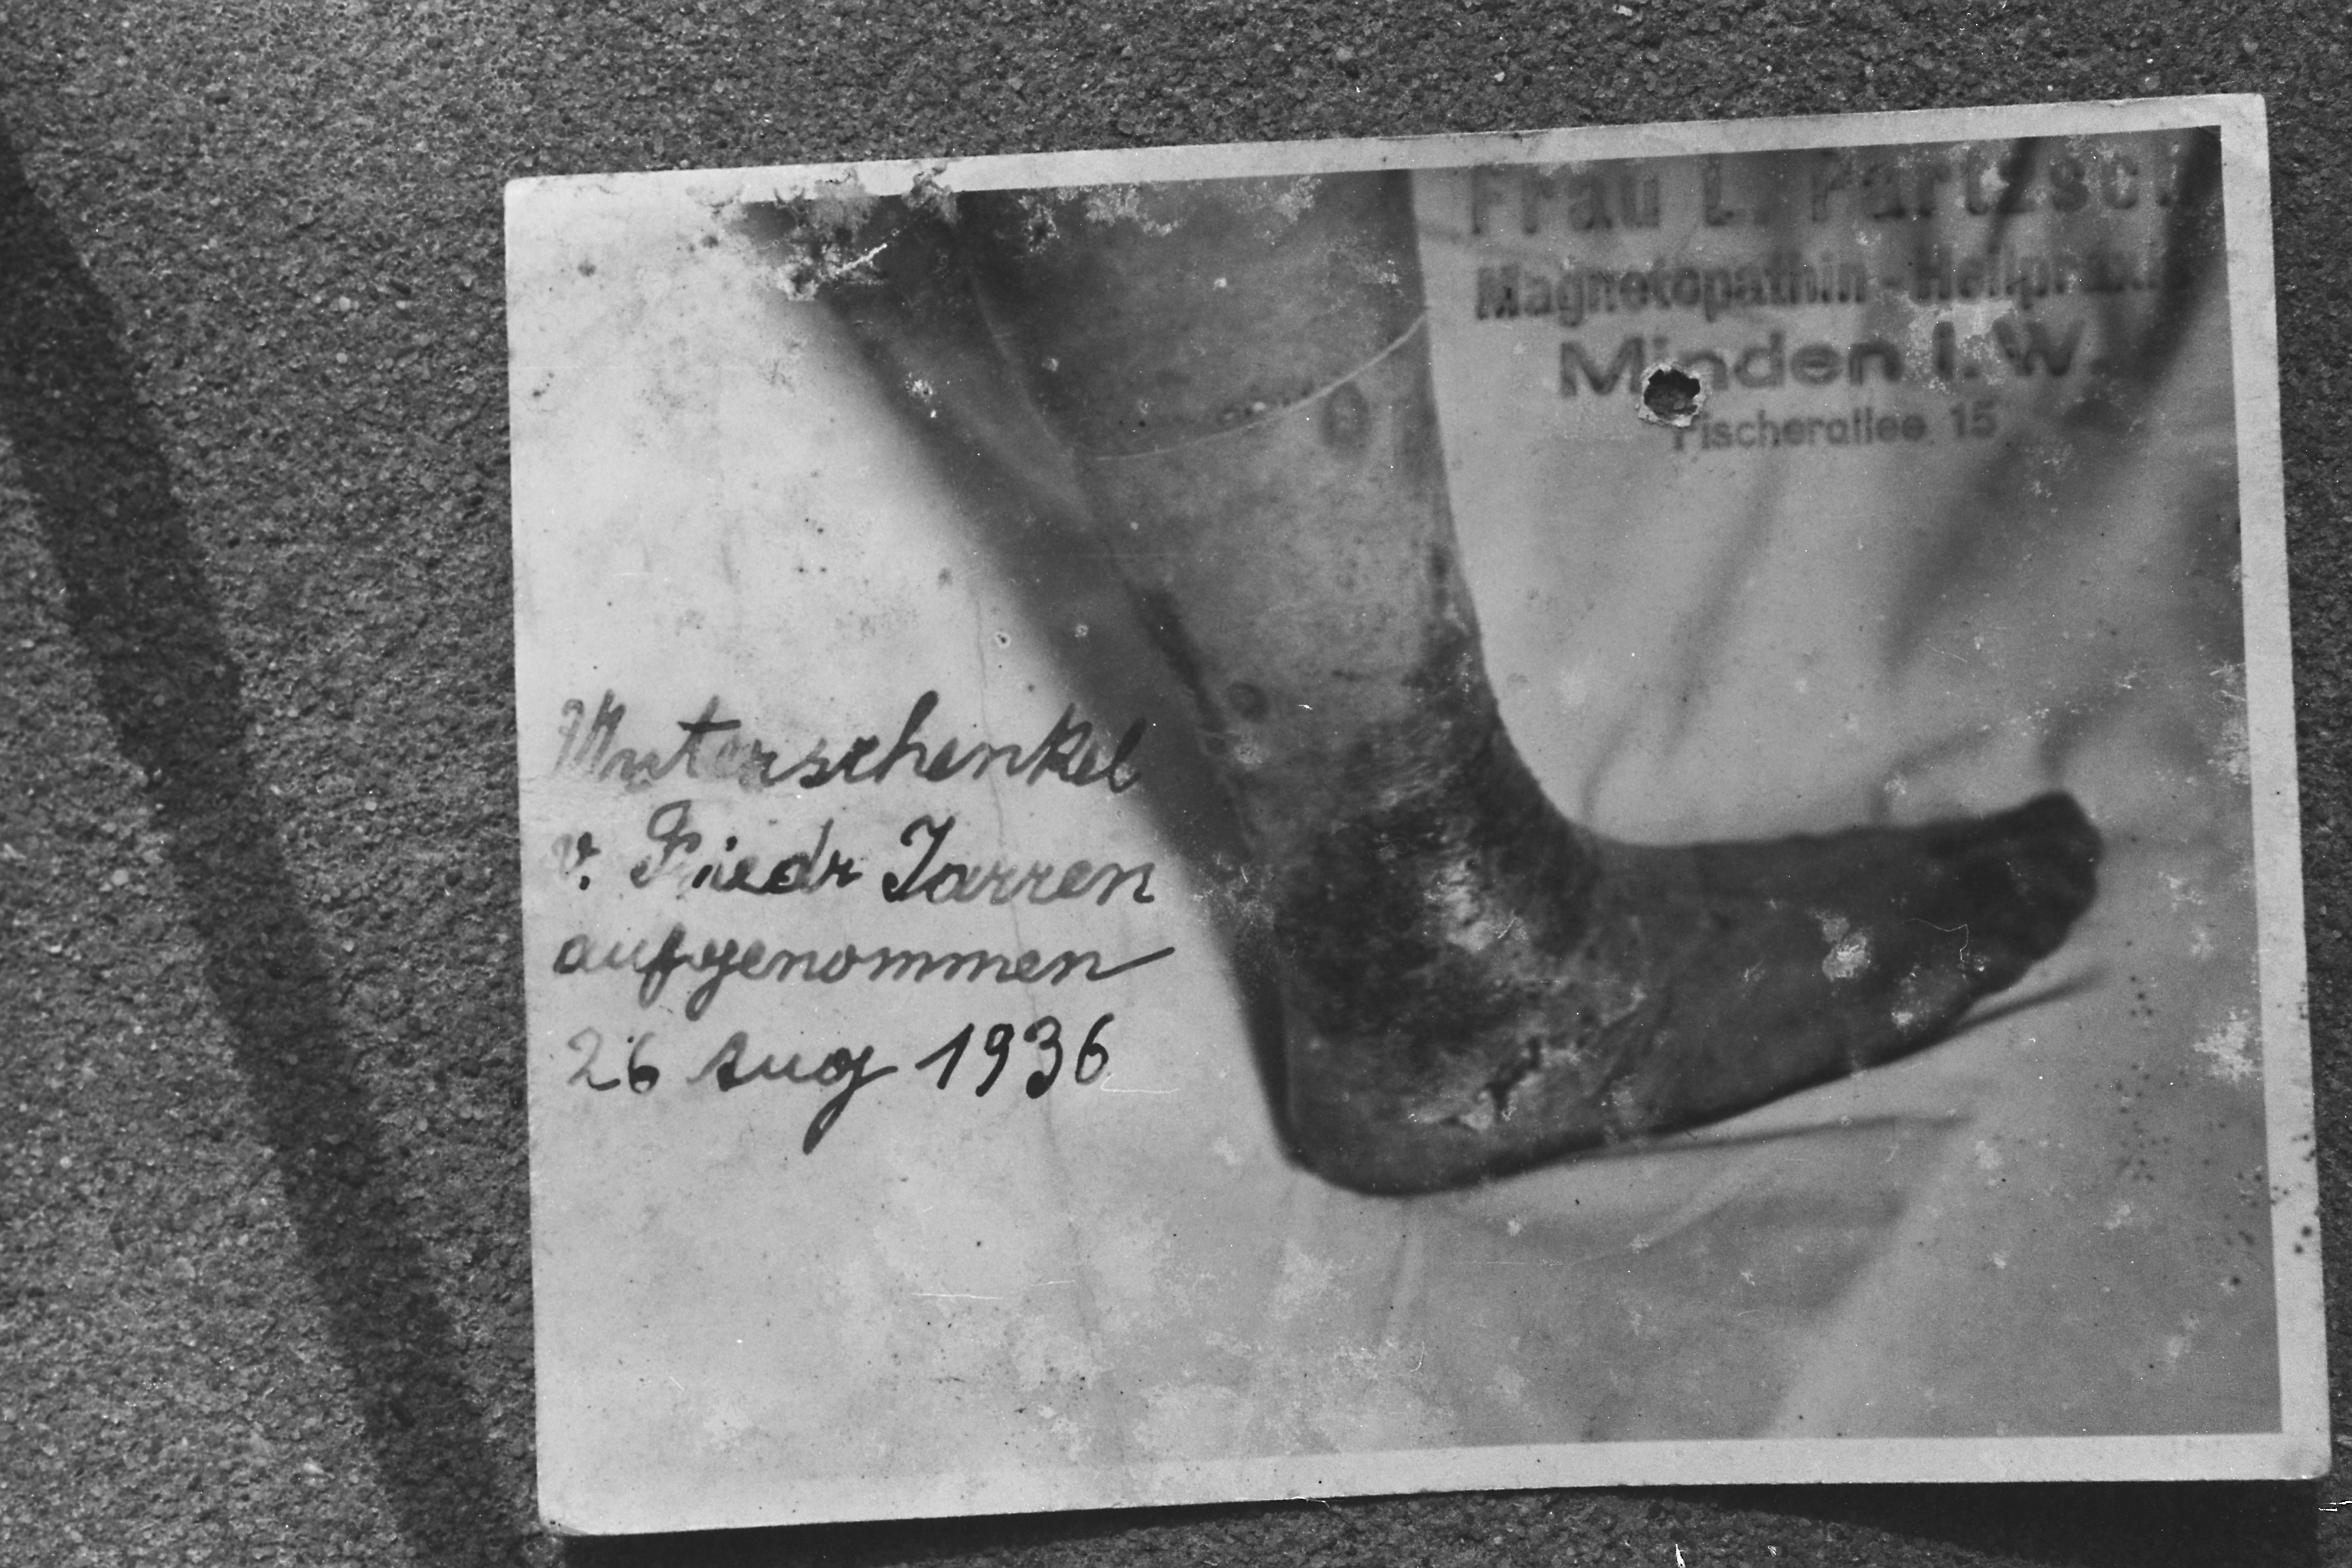 Frau L. Partzsch
Magnetopathin - Heilpraxis
Minden i. W.
Fischerallee 15
Unterschenkel
v. Friedr Jarren
aufgenommen
26 Aug 1936